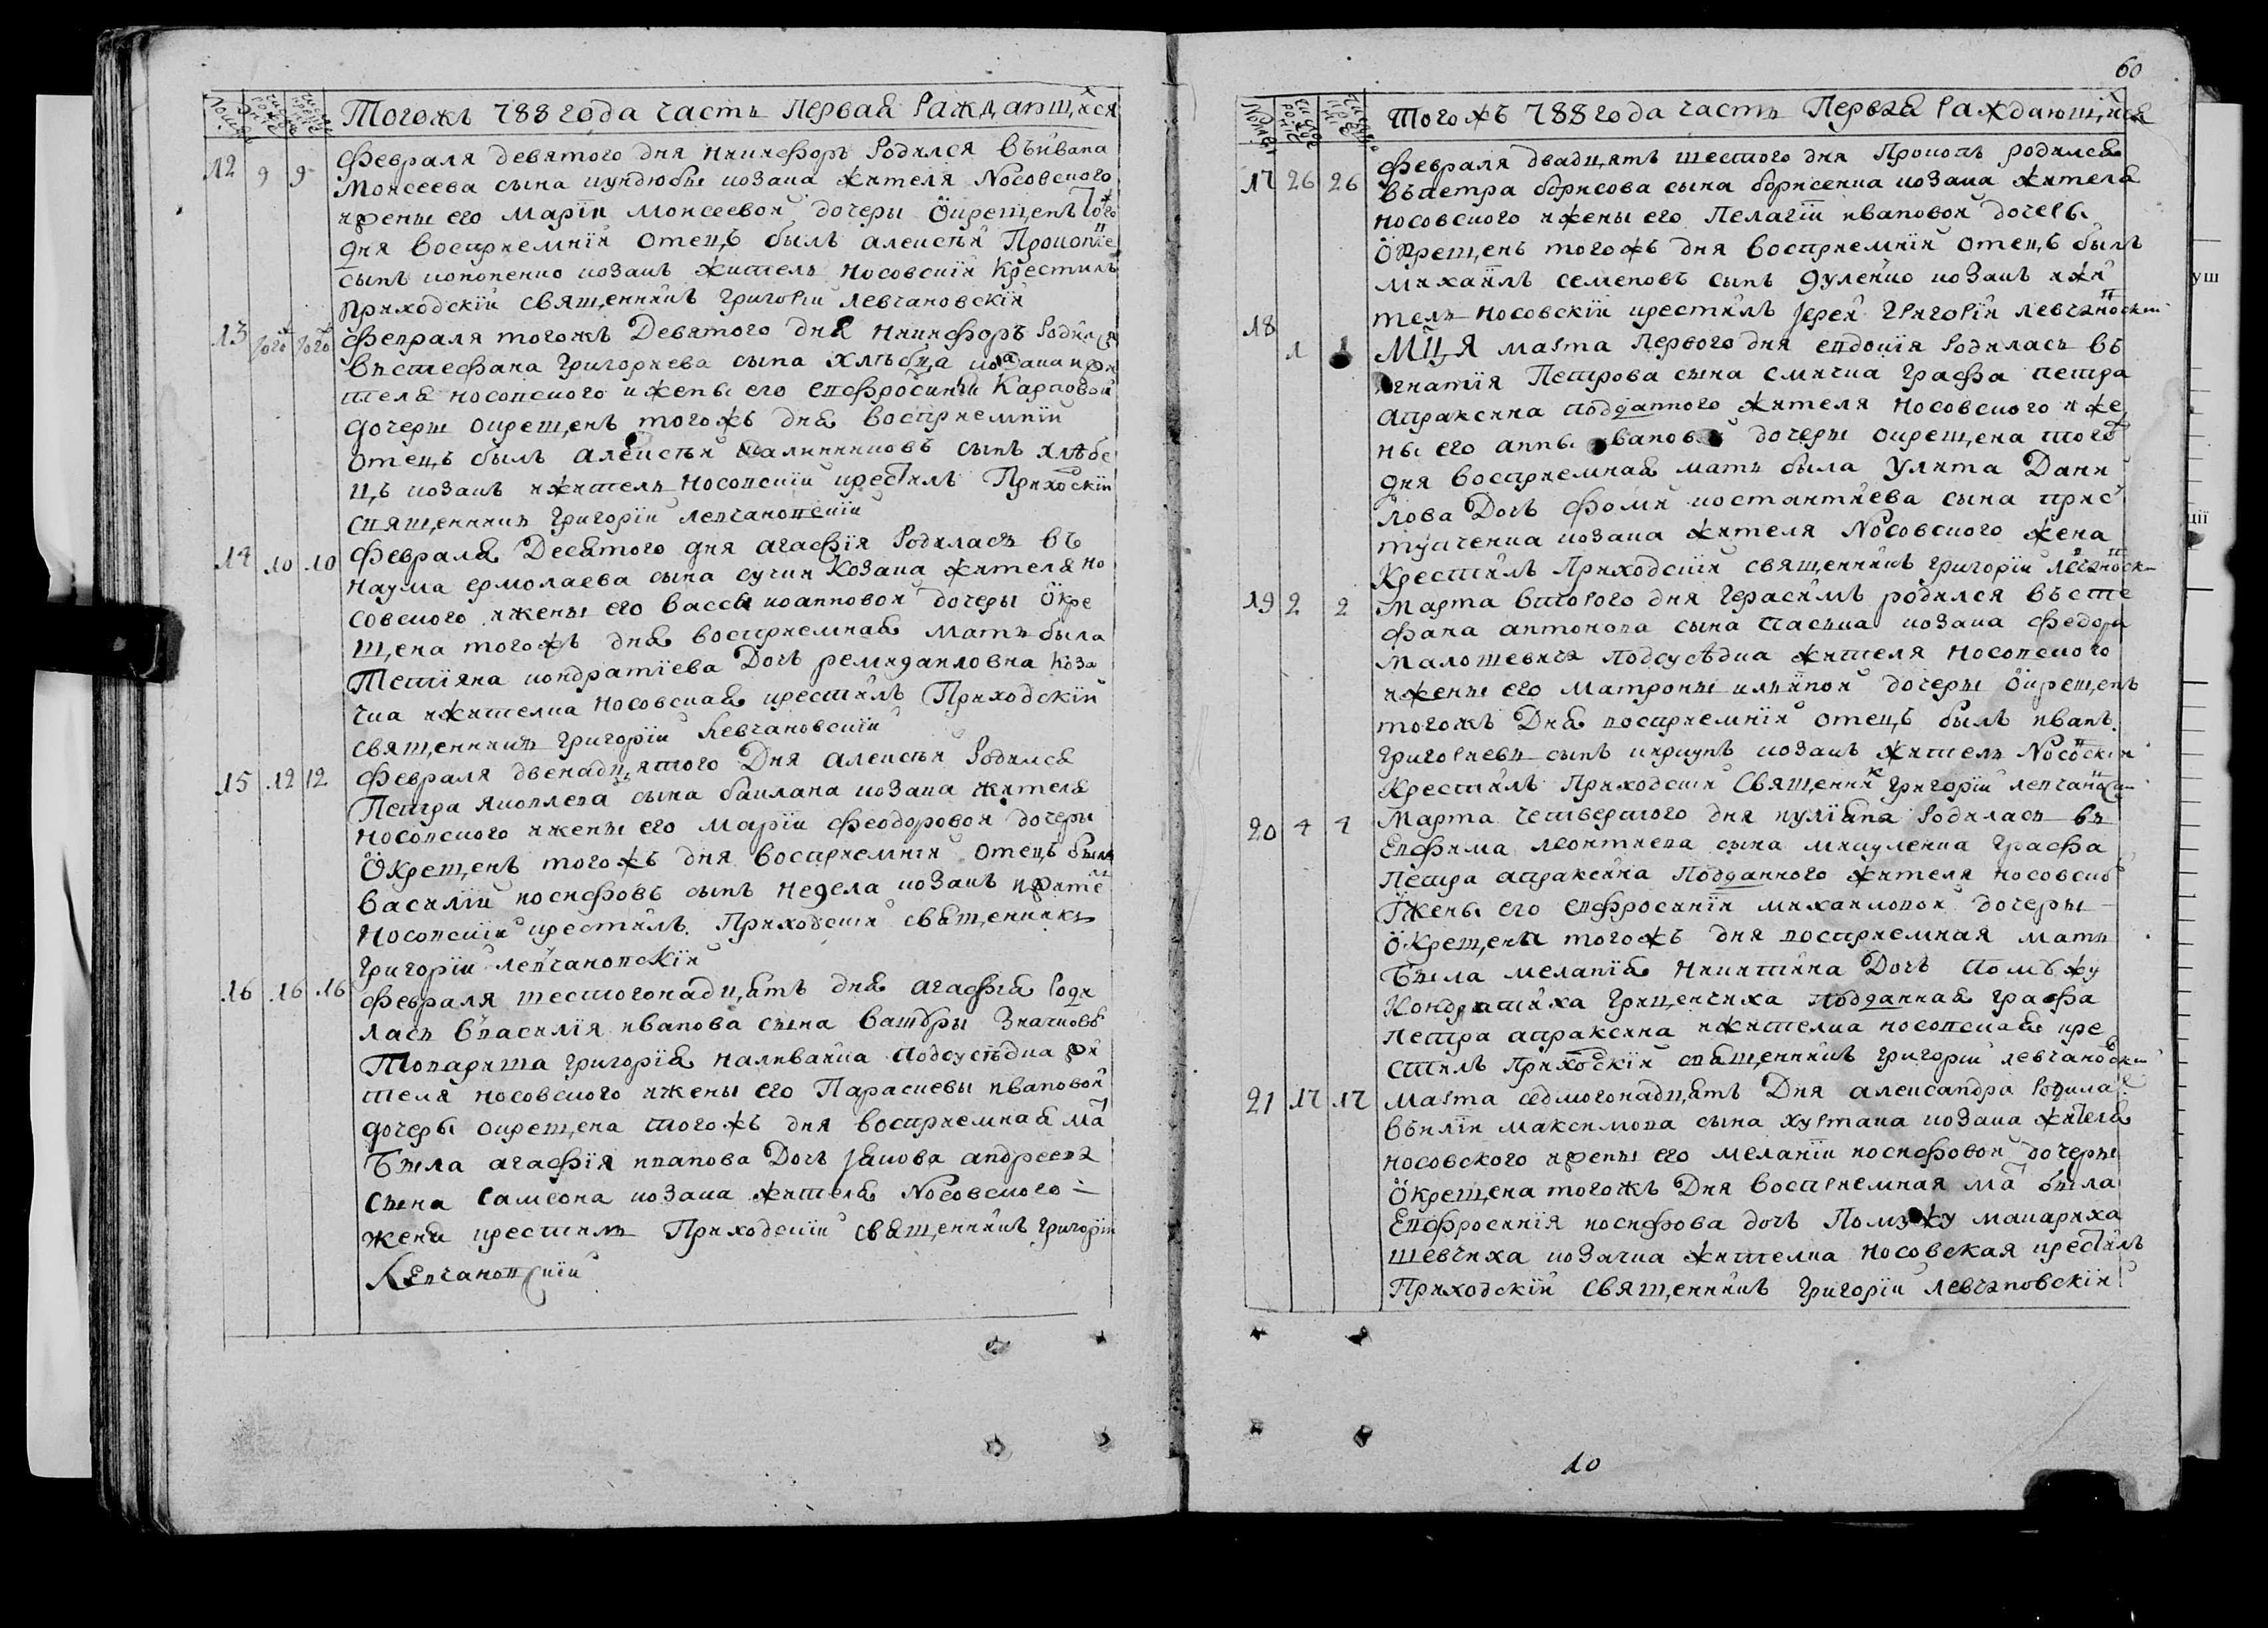 Тогожъ 788 года часть первая раждающихся
12 9 9 Февраля девятого дня никифоръ родился въ ивана
моисеева сына кундюбы козака жителя Носовского
и жены его маріи моисеевой дочеры окрещенъ того ж
дня восприемній отецъ былъ алексѣй Прокопіе
сынъ кононенко козакъ житель носовский Крестилъ
приходский священникъ григорий левчановский
13 того ж того ж февраля тогожъ Девятого дня никифоръ родился
въ стефана григориева сына хлѣбца козака и жи
теля носовского и жены его евфросиніи Карповой
дочеры окрещенъ тогожъ дня восприемній
отецъ былъ алексѣй калинниковъ сынъ хлѣбе
цъ козакъ и житель носовский крестилъ Прихоский
священникъ григорий левчановский
14 10 10 февраля Десятого дня агафія родилась въ
наума ермолаева сына сучки козака жителя но
совского и жены его вассы иоанновой дочеры окре
щена тогожъ дня восприемная мать была
Тетіяна кондратіева Дочъ ремиданловна коза
чка и жителка носовская крестилъ Приходский
священникъ григорий левчановский
15 12 12 февраля двенадцятого Дня алексѣй родился
Петра яковлева сына баклана козака жителя
носовского и жены его маріи феодоровой дочеры
окрещенъ тогожъ дня восприемній отецъ былъ
василій иосифовъ сынъ недела козакъ и жите
носовский крестилъ Приходский священникъ
григорий левчановский
16 16 16 февраля шестогонадцять дня агафія роди
лась в василія иванова сына вашбры значковъ
товариша григорія наливайка подсусѣдка жи
теля носовского и жены его Парасковьи ивановой
дочеры окрещена тогожъ дня восприемная ма
была агафія иванова Дочъ іакова андреева
сына самсона козака жителя Носовского
жена крестилъ Приходский священникъ григорий
Левчановский
60
тогожъ 788 года часть Первая раждающихся
17 26 26 февраля двадцять шестого дня Прокопъ родился
въ петра борисова сына борисенка козака жителя
носовского и жены его Пелагіи ивановой дочеры
окрещенъ тогожъ дня восприемній отецъ былъ
михаилъ семеновъ сынъ дуленко козакъ и жи
тель носовский крестилъ іерей григорий левчановский
18 1 1 Мця марта первого дня евдокія родилась въ
игнатія Петрова сына смичка графа петра
апраксина подданного жителя носовского и же
ны его анны ивановой дочеры окрещена того ж
дня восприемная мать была улита Дани
лова Дочъ фоми костантіева сына прис
тупченка козака жителя Носовского жена
Крестилъ Приходский священникъ григорий левчановский
19 2 2 марта второго дня герасимъ родился въ сте
фана антонова сына пасека козака федора
малошевича подсусѣдка жителя носовского
и жены его матроны ильиной дочеры окрещенъ
тогожъ Дня восприемній отецъ былъ иванъ
григориевъ сынъ кирцупъ козакъ житель Носовский
Крестилъ Приходский Священникъ григорий левчановский
20 4 4 марта четвертого дня иуліяна родилась въ
Евфима леонтиева сына микуленка графа
Петра апраксина Подданного жителя носовско
и жены его евфросиніи михаиловой дочеры
окрещена тогожъ дня восприемная мать
была меланія никитина Дочъ помужу
Кондратиха грищенчиха подданная графа
петра апраксина и жителка носовская кре
стилъ прихоский священникъ григорий левчановский
21 17 17 марта седмогонадцять Дня александра родила
въ иліи максимова сына хустана козака жителя
носовского и жены его меланіи иосифовой дочеры
окрещена тогожъ Дня восприемная ма была
Евфросинія иосифова дочъ Помужу макариха
шевчиха козачка жителка носовская крестилъ
Приходский священникъ григорий левчановский
10